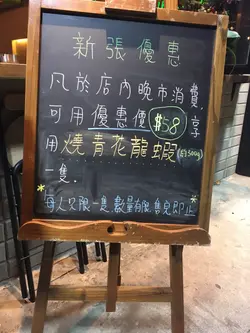 新張優惠
凡於店內晚市消費,
可用優惠價 $58 享
用燒青花龍蝦(約500g)
一隻.
*每人只限一隻,數量有限,售完即止*